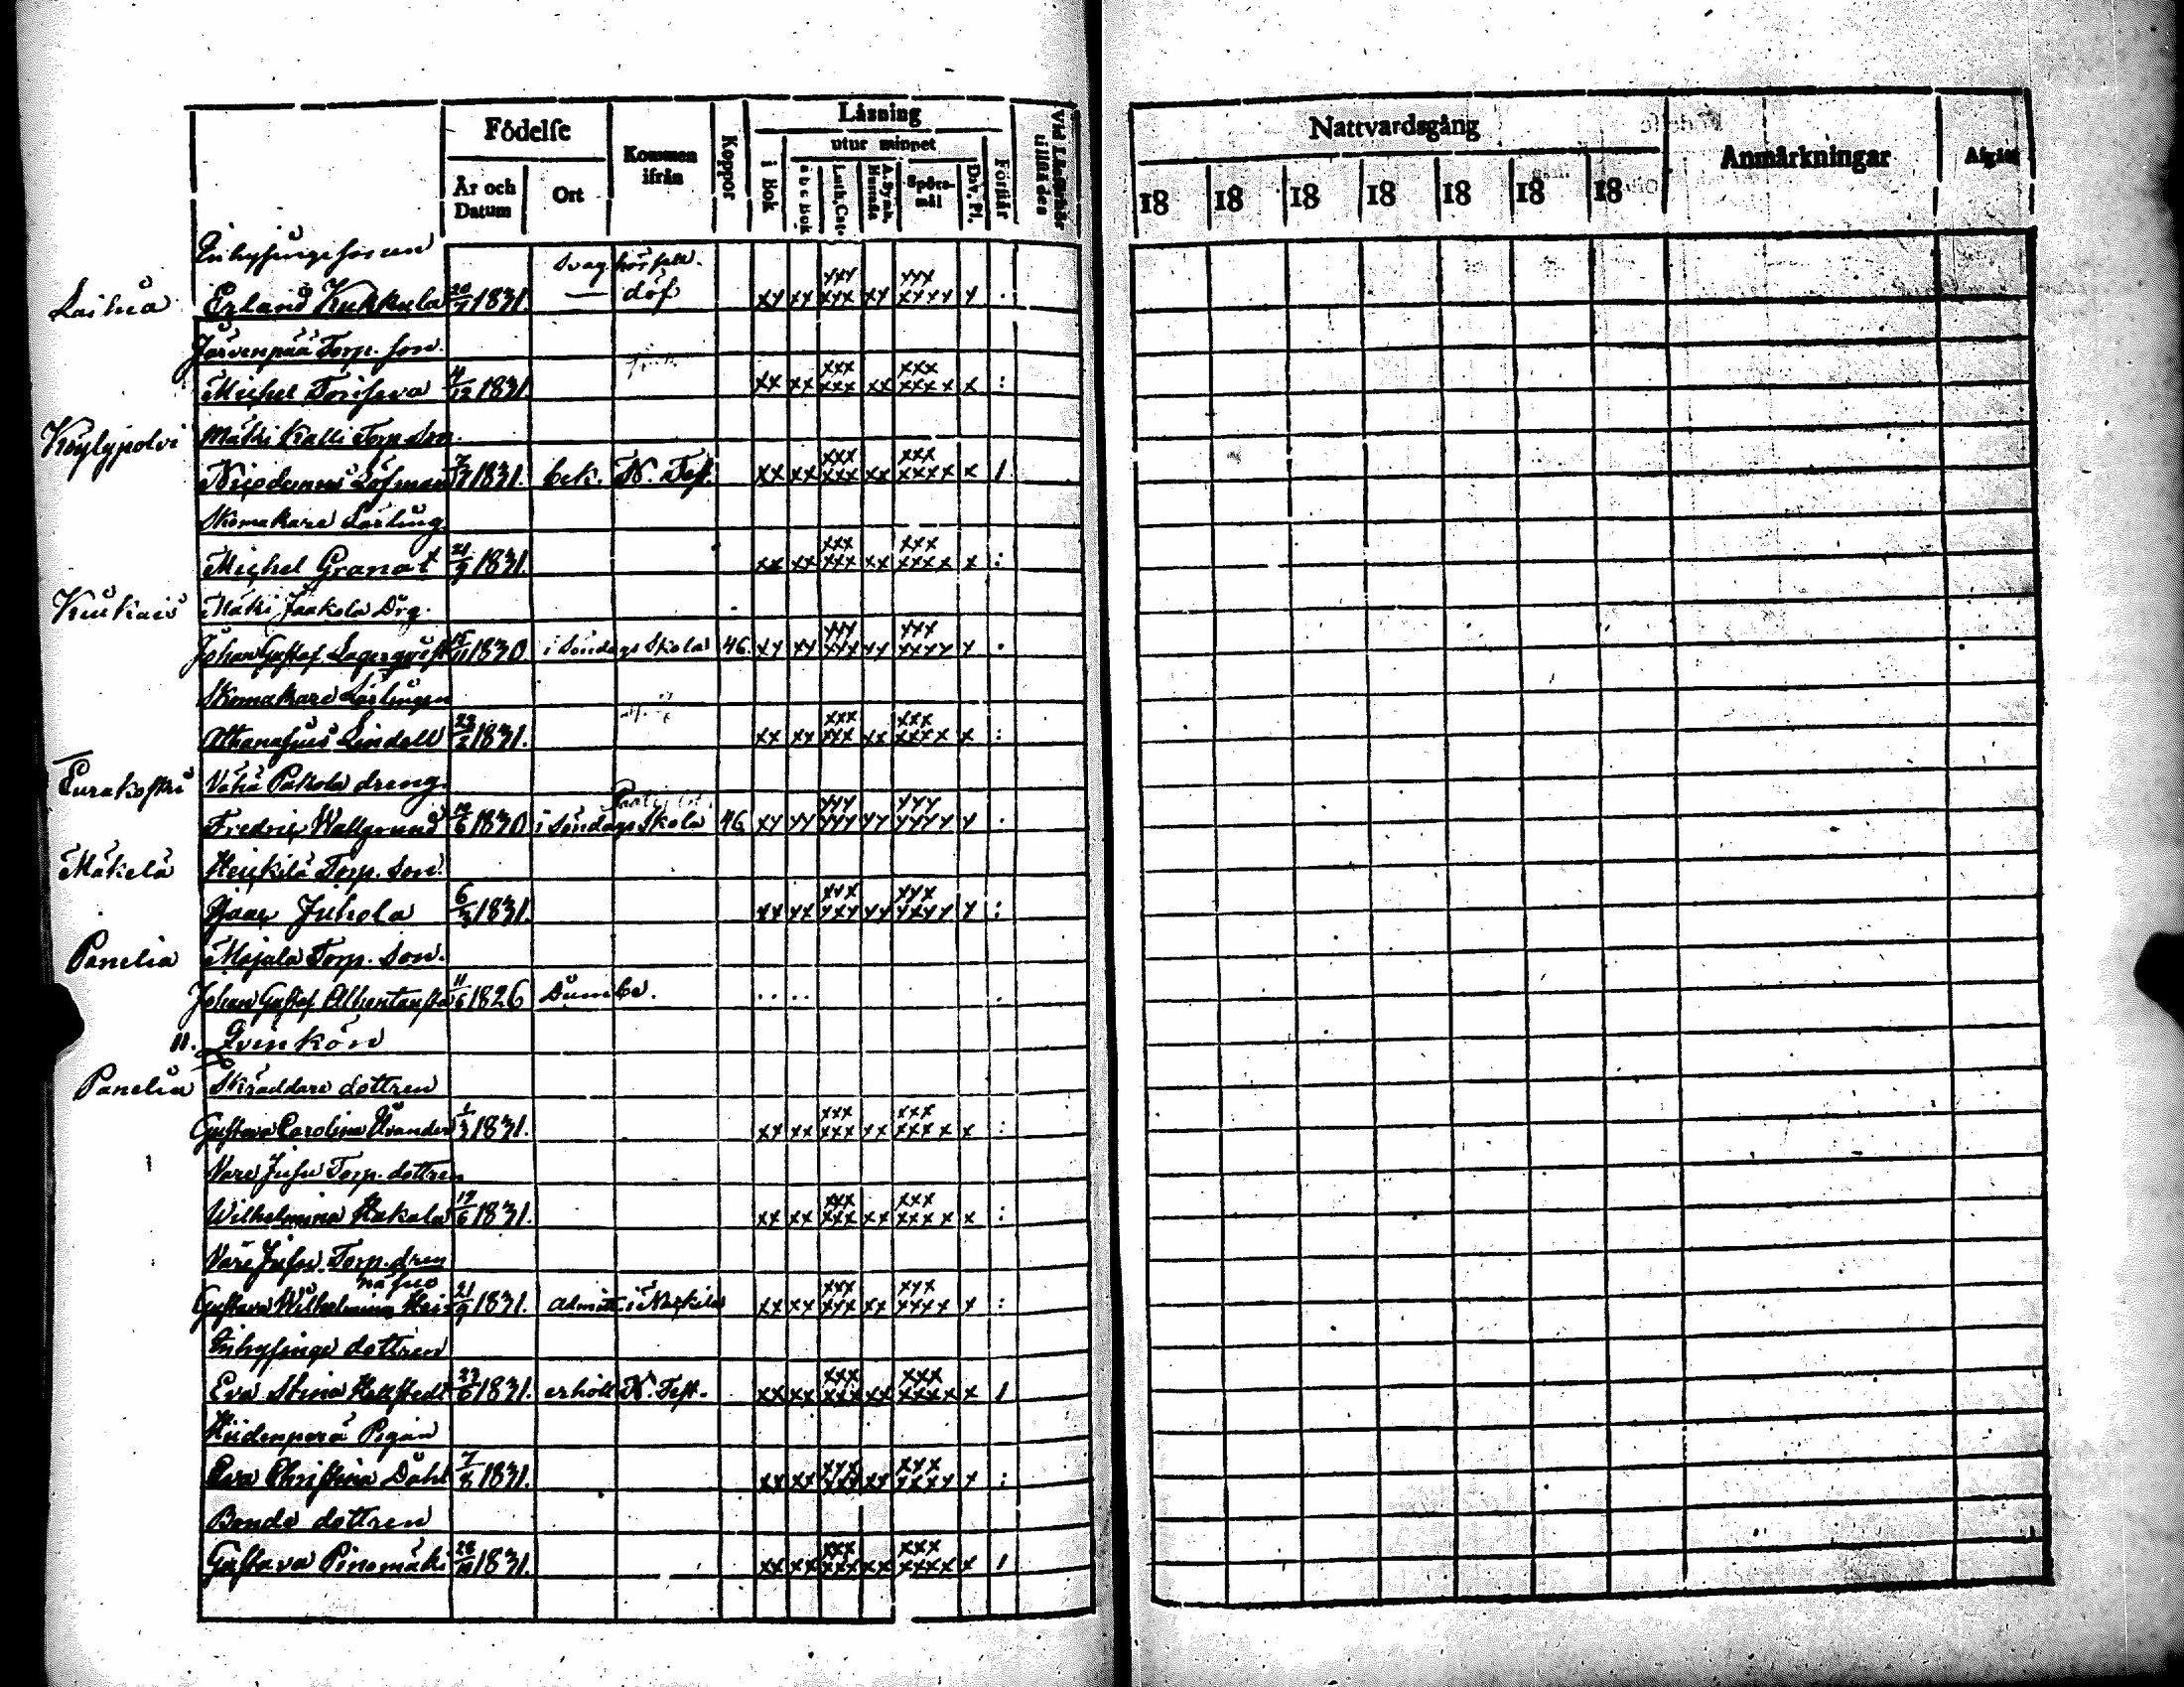 Födelse
Kommen ifrån
Koppor
Läsning
Nattvardsgång
Anmärkningar
Afgått
År och Datum
Ort
i Bok
utur minnet
abc Bok
Luth. Cat.
A. Symb. Hustafla
Spörs-mål
Dav. Ps.
Förstår
18 18 18 18 18 18 18
Inhysinge sonen svag hörsel.
Laihia Erland Kukkula 20/7 1831. — döf xx xx xxx xxx xx xxx xxxx x .
Järvenpää Torp. son.
Michel Toriseva 4/12 1831 xx xx xxx xxx xx xxx xxxx x :
Köylypolvi Mäki Kalli Torp. Son.
Löfman 1831. bek. N. Test. xx xx xxx xxx xx xxx xxxx x /
Skomakare Lärling
Michel Granat 21/9 1831. xx xx xxx xxx xx xxx xxxx x :
Kiukais Mäki Jaakola Drg.
Johan Gustaf Lagerqvist 15/11 1830. i Söndags Skola 46. xx xx xxx xxx xx xxx xxxx x .
Skomakare Lärlingen
Athanasius Lindell 23/2 1831. xx xx xxx xxx xx xxx xxxx x :
Eurakoski Vähä Pakola dreng.
Fredric Wallgrund 10/6 1830 i Söndags Skola 46 xx xx xxx xxx xx xxx xxxx x .
Mäkelä Heickilä Torp. Son.
Isaac Juhola 6/3 1831. xx xx xxx xxx xx xxx xxxx x :
Panelia Majala Torp. Son.
Johan Gustaf 11/6 1826 Dumbe. . . . . .
11. Qvinkön
Panelia Skräddare dottren
Gustava Carolina 1/3 1831. xx xx xxx xxx xx xxx xxxx x :
Vare Juhu Torp. dottren
Wilhelmina Hakala 19/6 1831. xx xx xxx xxx xx xxx xxxx x :
Vare Juhu Torp. dren
Gustava Wilhelmina 21/9 1831. admitt. i Nackila xx xx xxx xxx xx xxx xxxx x :
Inhysinge dottren
Eva Stina Hellstedt 23/6 1831. erhöll N. Test. xx xx xxx xxx xx xxx xxxx x /
Hiidenperä Pigan
Eva Christina Dahl 7/8 1831. xx xx xxx xxx xx xxx xxxx x :
Bonde dottren
Gustava Pinomäki 28/10 1831. xx xx xxx xxx xx xxx xxxx x /